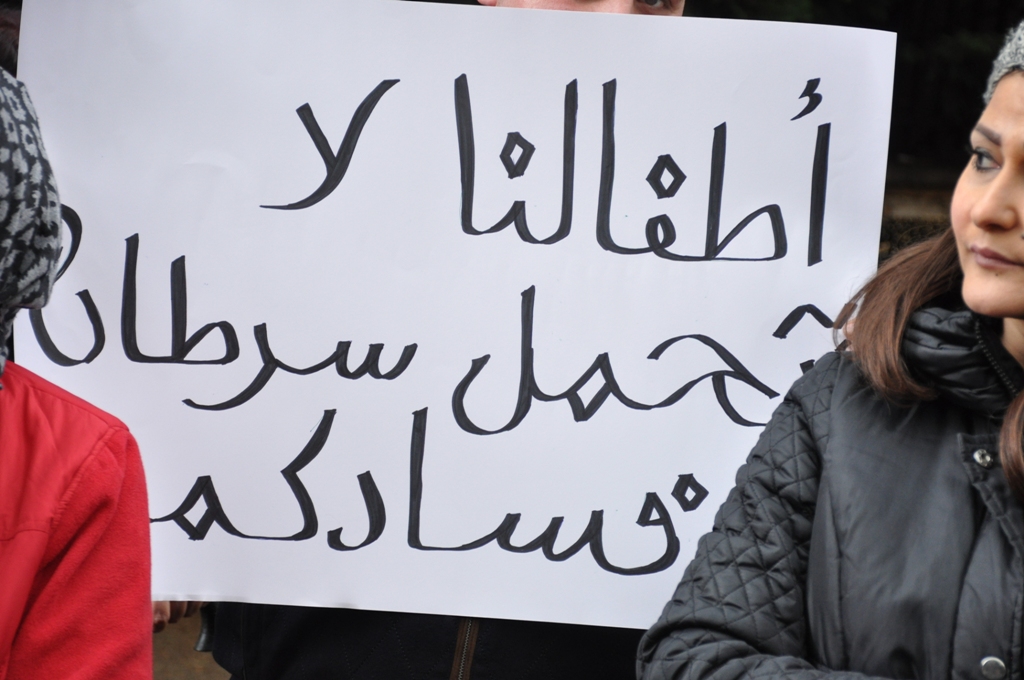 أطفالنا لا
تحمل سرطان
فسادكم